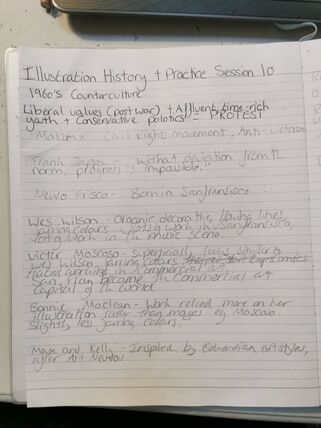 Illustration History + Practice Session 10
1960's Counterculture
Liberal values (post war) + Affluent, time-rich
youth + conservative politics = PROTEST
Malcom x Civil Rights movement, Anti-Vietnam
Frank Zappa - "Without deviation from the
norm, progress is impossible."
Neuvo Frisco -
Wes Wilson - Organic decorative, flowing lines
jarring colours. Lots of work in San fransisco,
lots of work in the music scene.
Victor Moscoso - superficially looks similar to
Wes Wilson, jarring colours
Hated working in commercial art
San Fran became the commercial art
capital of the world
Bonnie Maclean - Work relied more on her
illustration rather than images eg Moscoso.
slightly less jarring colours.
Mouse and Kelly - Inspired by Edwardian art styles,
after Art Nouveau